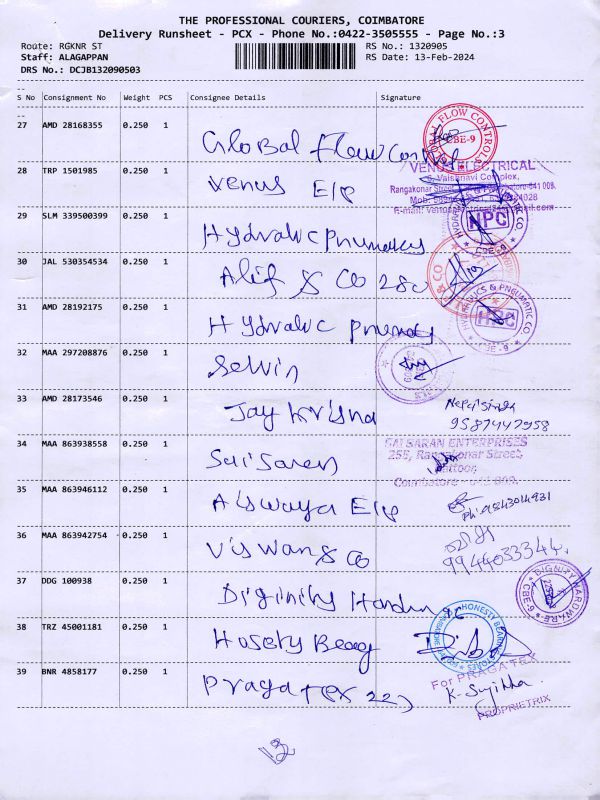 THE PROFESSIONAL COURIERS, COIMBATORE
Delivery Runsheet - PCX - Phone No.:0422-3505555 - Page No.:3
Route: RGKNR ST RS No.: 1320905
Staff: ALAGAPPAN RS Date: 13-Feb-2024
DRS No.: DCJB132090503
S No Consignment No Weight PCS Consignee Details Signature
27 AMD 28168355 0.250 1 Global Flow Control GLOBAL FLOW CONTROLS CBE-9
28 TRP 1501985 0.250 1 Venus E/p VENUS ELECTRICAL
Vaishnavi Complex,
Rangakonar Street
29 SLM 339500399 0.250 1 Hydraluc pnumatcy HPC CBE-9
30 JAL 530354534 0.250 1 Alif & Co 280
31 AMD 28192175 0.250 1 Hydraluc pnumaty HYDRAULICS & PNEUMATIC CO. HPC CBE-9
32 MAA 297208876 0.250 1 Selvin
33 AMD 28173546 0.250 1 Jay Krisna
9587447958
34 MAA 863938558 0.250 1 Sai Saren SAI SARAN ENTERPRISES
255, Rangakonar Street,
Kattoor,
Coimbatore - 641 009.
35 MAA 863946112 0.250 1 Aiswaya E/p
36 MAA 863942754 0.250 1 Viswan & Co
9944033344.
37 DDG 100938 0.250 1 Diginity DIGNITY HARDWARE CBE-9
38 TRZ 45001181 0.250 1 Hosety Bearg HONESTY BEARING STORES
39 BNR 4858177 0.250 1 Praga tex 22) For PRAGA TEX
K. Sujitha
PROPRIETRIX